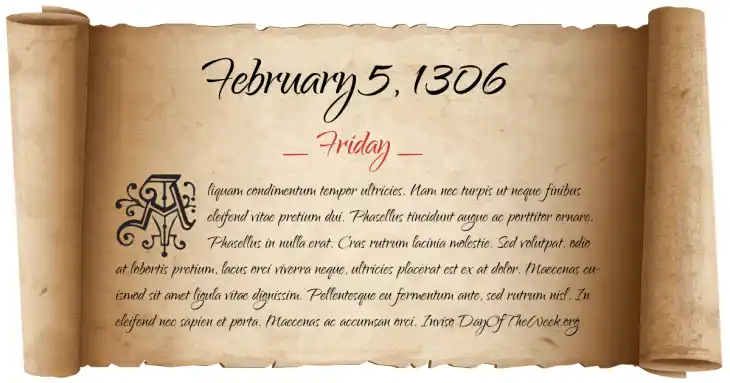 February 5, 1306
— Friday —
Aliquam condimentum tempor ultricies. Nam nec turpis ut neque finibus
eleifend vitae pretium dui. Phasellus tincidunt augue ac porttitor ornare.
Phasellus in nulla erat. Cras rutrum lacinia molestie. Sed volutpat, odio
at lobortis pretium, lacus orci viverra neque, ultricies placerat est ex at dolor. Maecenas eu-
ismod sit amet ligula vitae dignissim. Pellentesque eu fermentum ante, sed rutrum nisl. In
eleifend nec sapien et porta. Maecenas ac accumsan orci. Inviso DayOfTheWeek.org